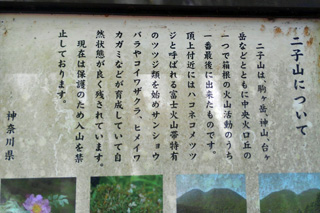 二子山について
二子山は、駒ヶ岳、神山、台ヶ
岳などとともに中央火口丘の
一つで箱根の火山活動のうち
一番最後に出来たものです。
頂上付近にはハコネコメツツ
ジと呼ばれる富士火山帯特有
のツツジ類を始めサンショウ
バラやコイワザクラ、ヒメイワ
カガミなどが育成していて自
然状態が良く残されています。
現在は保護のため入山を禁
止しております。
神奈川県